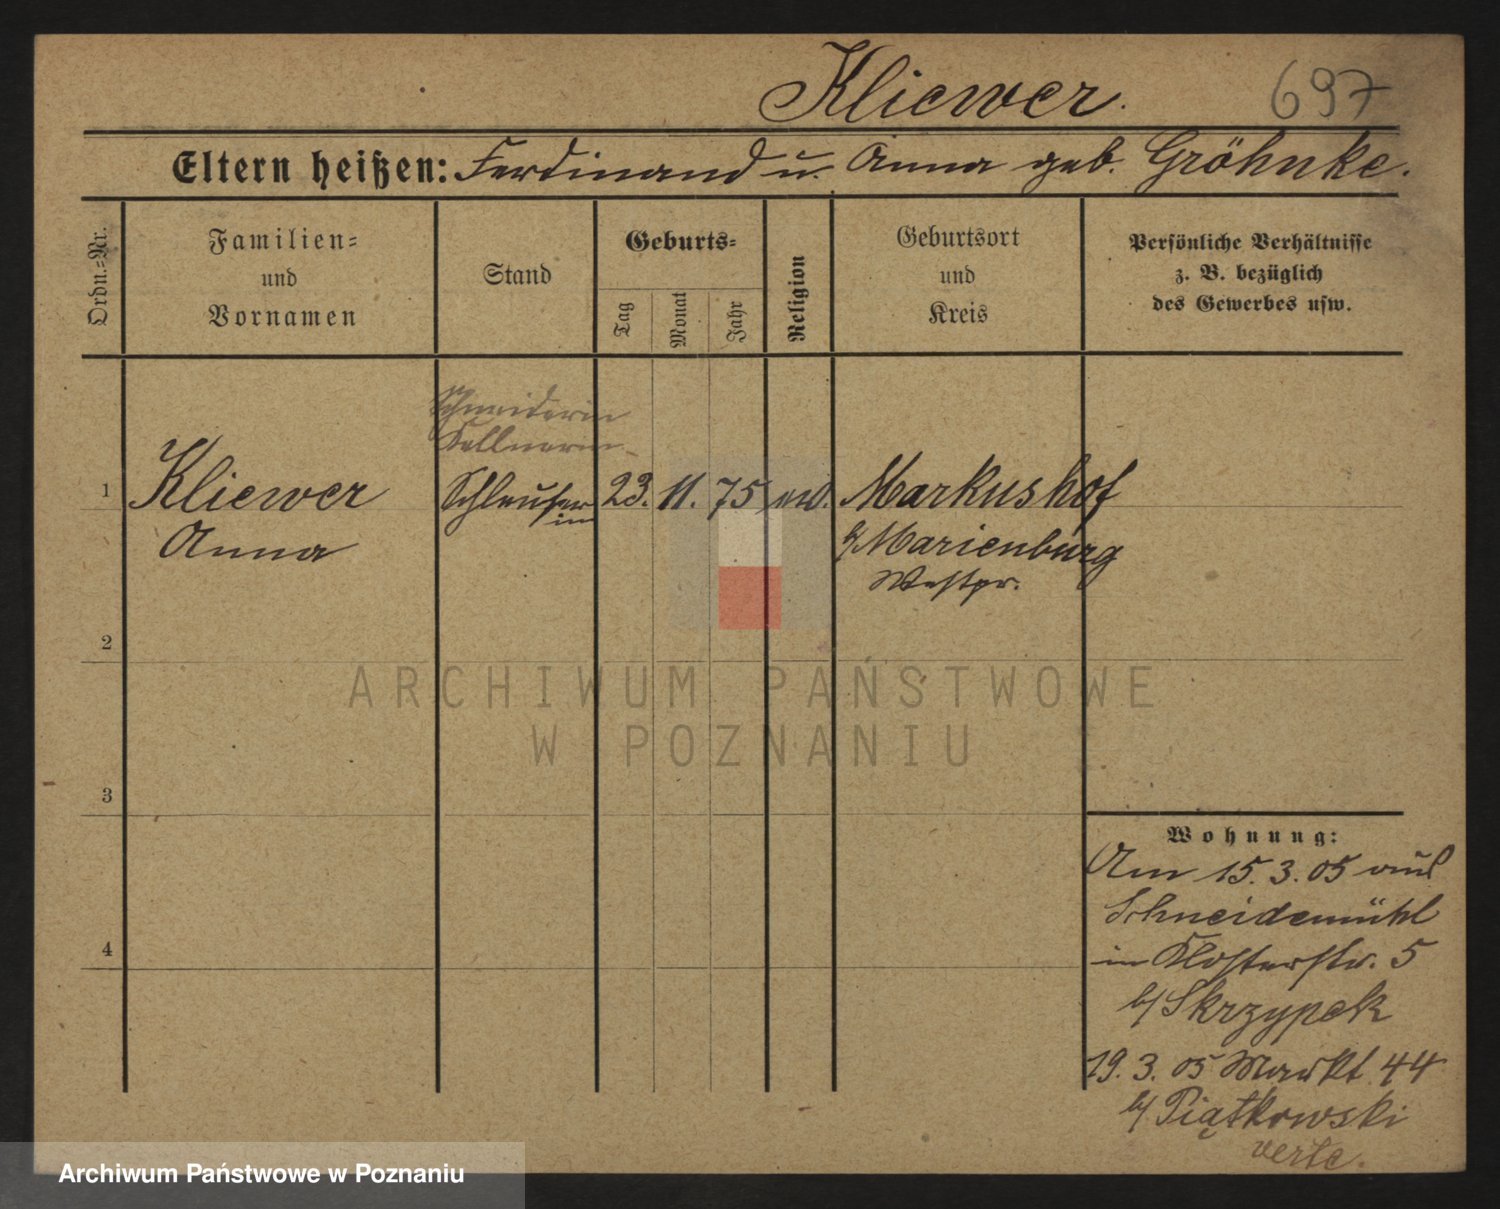 Kliewer.
697
Eltern heißen: Ferdinand u. Anna geb. Gröhnke.
Ordn.-Nr.
Familien-
und
Vornamen
Stand
Geburts-
Tag
Monat
Jahr
Religion
Geburtsort
und
Kreis
Persönliche Verhältnisse
z. B. bezüglich
des Gewerbes usw.
Schneiderin
Kellnerin
1 Kliewer 23. 11. 75 ev. Markushof
Anna
b/ Marienburg
Westpr.
2
ARCHIWUM PAŃSTWOWE
W POZNANIU
3
4
Wohnung:
Am 15. 3. 05 aus
Schneidemühl
in Klosterstr. 5
b/ Skrzypek
19. 3. 05 Markt 44
b/ Piątkowski
verte.
Archiwum Państwowe w Poznaniu